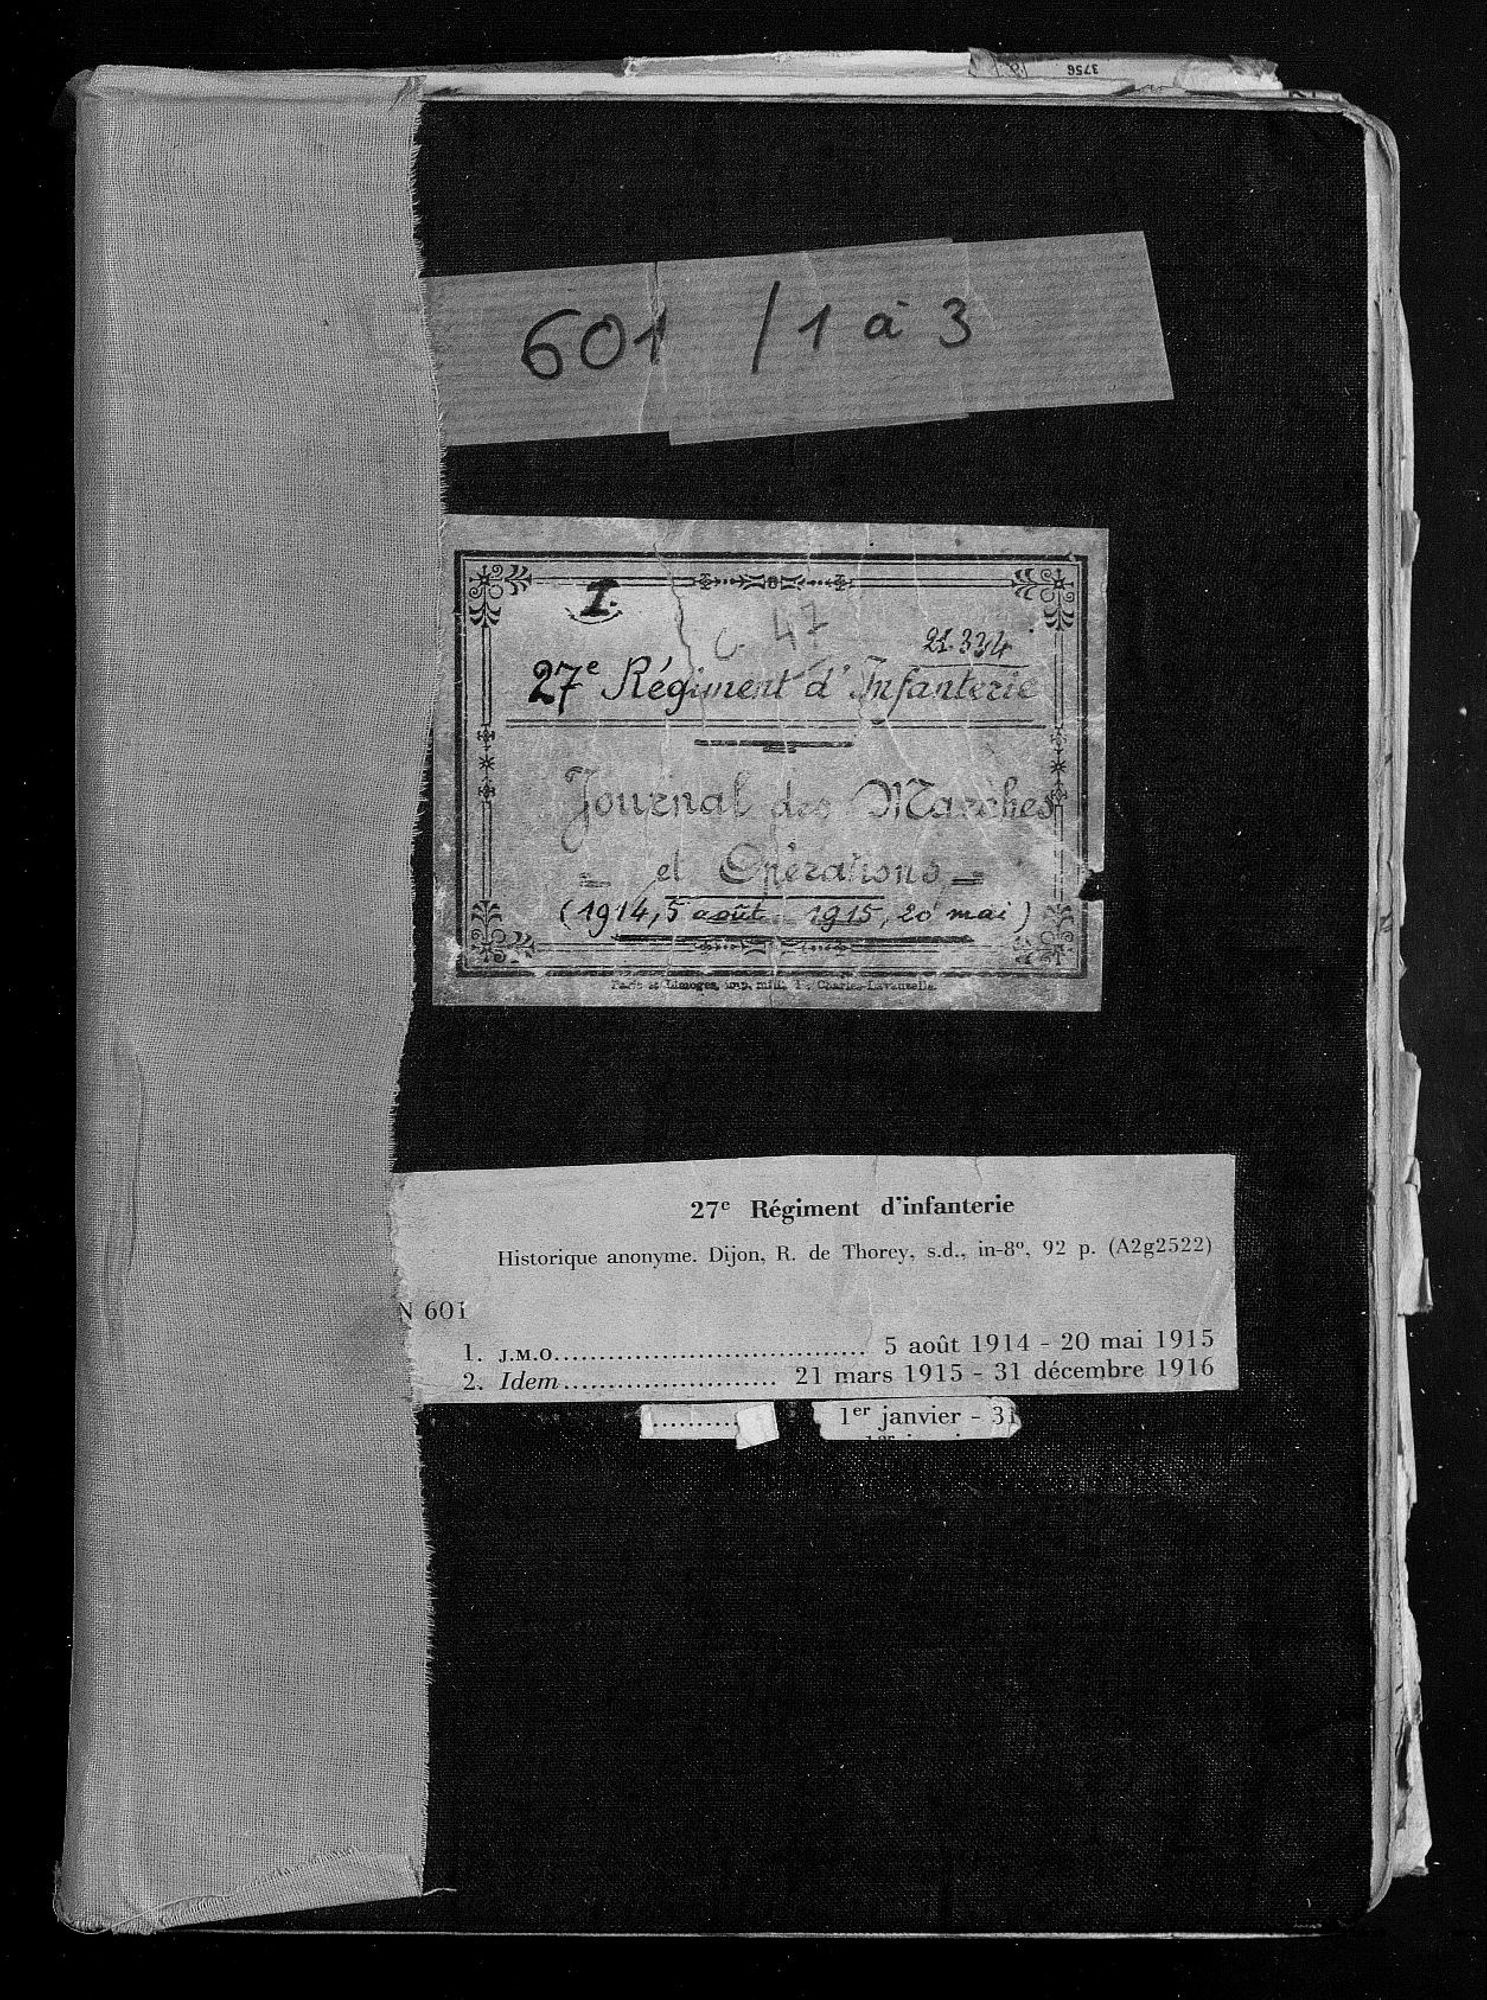 3756
601 / 1 à 3
I.
C. 47
21.334
27e Régiment d'Infanterie
Journal des Marches
et Opérations
(1914, 5 août - 1915, 20 mai)
Paris et Limoges, imp. milit. Charles-Lavauzelle.
27e Régiment d'infanterie
Historique anonyme. Dijon, R. de Thorey, s.d., in-8º, 92 p. (A2g2522)
N 601
1. J.M.O. .................................. 5 août 1914 - 20 mai 1915
2. Idem ........................ 21 mars 1915 - 31 décembre 1916
........... 1er janvier - 31